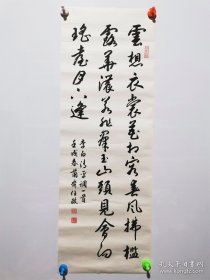 雲想衣裳花想容春風拂檻
露華濃若非羣玉山頭見會向
瑤臺月下逢
李白清平調一首
壬戌春